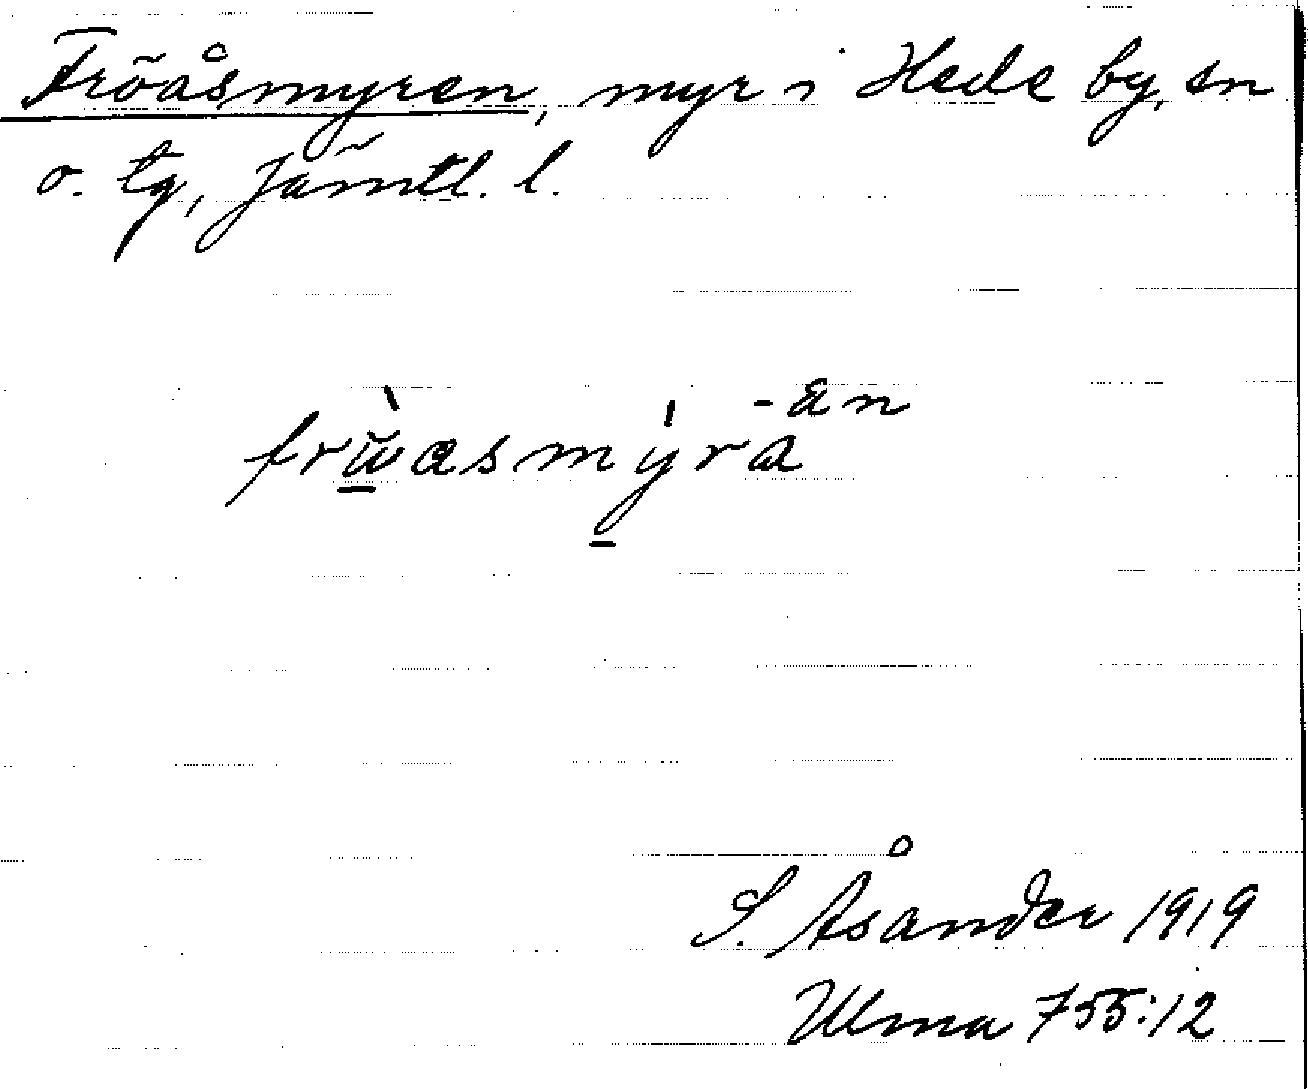 Fröåsmyren, myr i Hede by, sn
o. tg, Jämtl. l.
-än
frẁ̈asmýra
S. Åsander 1919
Ulma 755:12